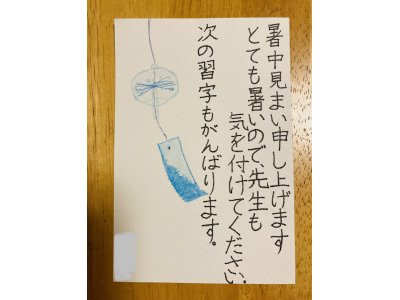 暑中見まい申し上げます
とても暑いので、先生も
気を付けてください。
次の習字もがんばります。